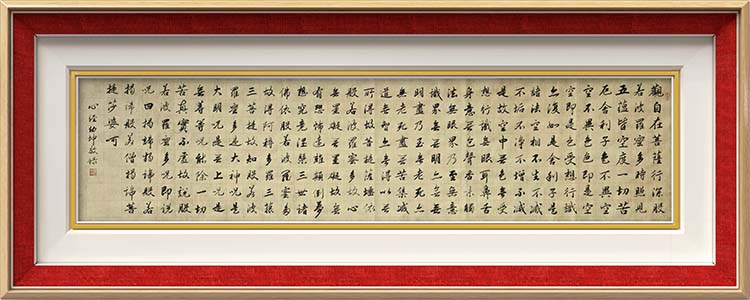 觀自在菩薩行深般
若波羅蜜多時照見
五蘊皆空度一切苦
厄舍利子色不異空
空不異色色即是空
空即是色受想行識
亦復如是舍利子是
諸法空相不生不滅
不垢不淨不增不減
是故空中無色無受
想行識無眼耳鼻舌
身意無色聲香味觸
法無眼界乃至無意
識界無無明亦無無
明盡乃至無老死亦
無老死盡無苦集滅
道無智亦無得以無
所得故菩提薩埵依
般若波羅蜜多故心
無罣礙無罣礙故無
有恐怖遠離顛倒夢
想究竟涅槃三世諸
佛依般若波羅蜜多
故得阿耨多羅三藐
三菩提故知般若波
羅蜜多是大神咒是
大明咒是無上咒是
無等等咒能除一切
苦真實不虛故說般
若波羅蜜多咒即說
咒曰揭諦揭諦般若
揭諦般若僧揭諦菩
提莎婆可
心經幼坤敬錄